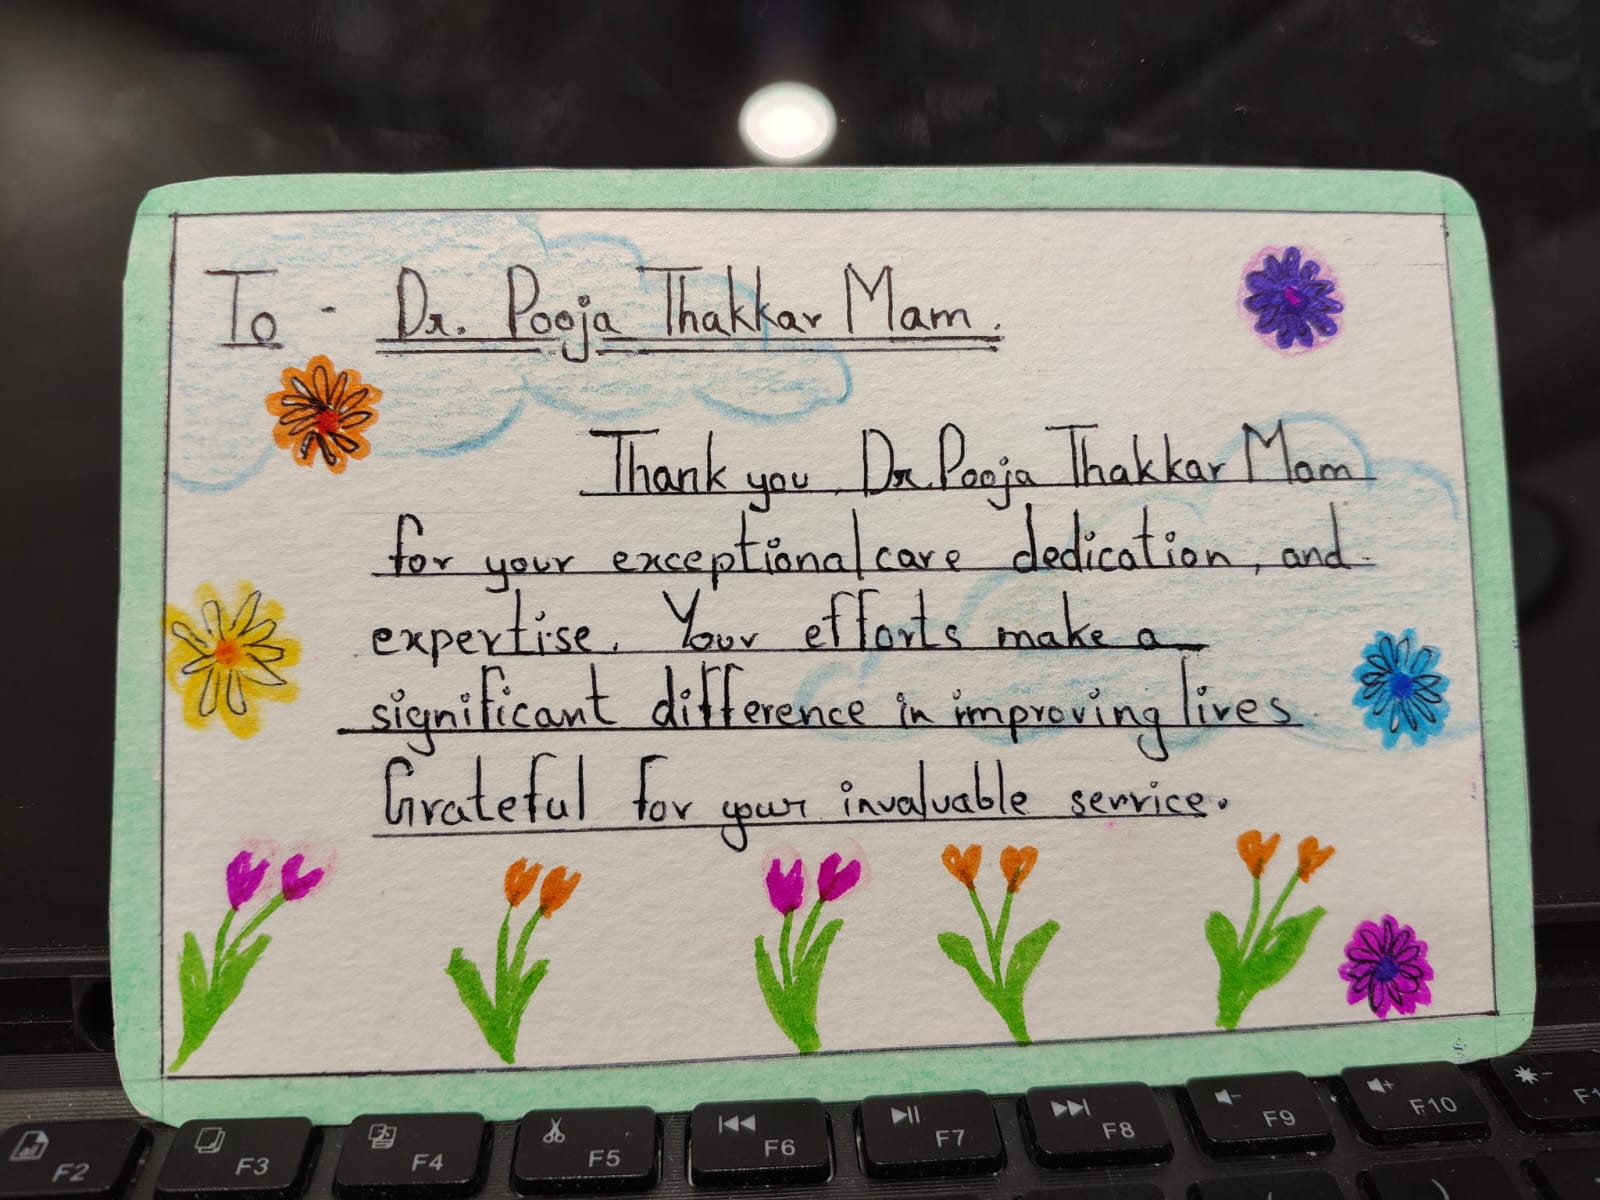 To - Dr. Pooja Thakkar Mam.
Thank you, Dr. Pooja Thakkar Mam
for your exceptional care dedication, and
expertise. Your efforts make a
significant difference in improving lives
Grateful for your invaluable service.
F2 F3 F4 F5 F6 F7 F8 F9 F10